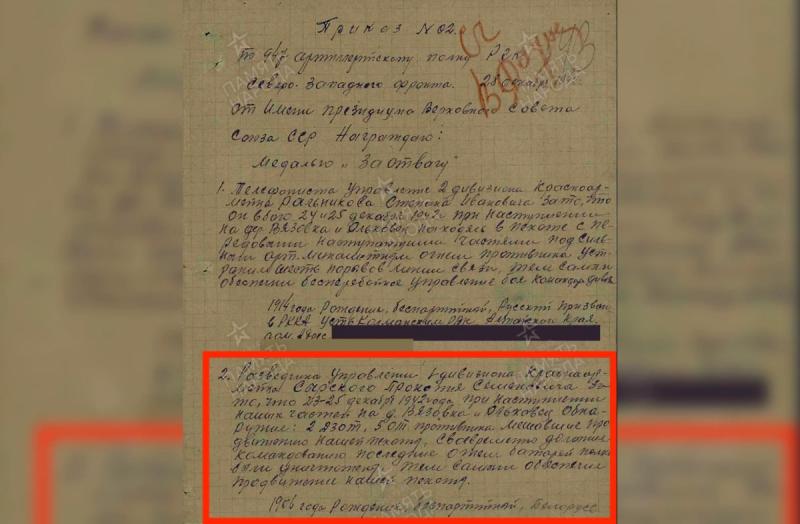 Приказ № 02.
по 947 артиллерийскому полку
Северо-Западного фронта. 28 декабря
От Имени президиума Верховного Совета
Союза ССР Награждаю:
Медалью „За отвагу"
1. Телефониста Управление 2 дивизиона Красноар-
мейца Степана Ивановича За то, что
он в бою 24 и 25 декабря 1942г при наступлении
на дер. Вязовка и Ольховец находясь в пехоте с пе-
редовыми наступающими частями под силь-
ным арт. минометным огнем противника уст-
ранил шесть порывов линии связи, тем самым
обеспечил бесперебойное управление боя
1914 года рождения, беспартийный, Русский призван
в РККА Усть Калманским РВК Алтайского Края.
2. Разведчика Управлении 1 дивизиона Красноар-
мейца Сырского Прокопия Семеновича За
то, что 23-25 декабря 1942 года при наступлении
наших частей на д. Вязовка и Ольховец Обна-
ружил: 2 дзот, 5 от. противника мешавшие про
движению нашей пехоты, Своевременно
командованию последние огнем батарей полка
были уничтожены, тем самым обеспечил
продвижение нашей пехоты.
1906 года Рождения, беспартийный, Белорусс
ПАМЯТЬ
НАРОДА